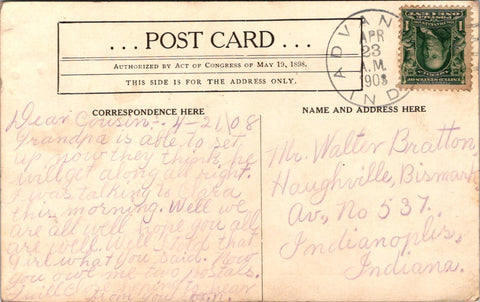 ... POST CARD ...
AUTHORIZED BY ACT OF CONGRESS OF MAY 19, 1898.
THIS SIDE IS FOR THE ADDRESS ONLY.
ADVAN
APR
23
A.M.
1908
IND
CORRESPONDENCE HERE
Dear Cousin:- 4-21/08
Grandpa is able to set
up now they think he
will get along all right.
I was talking to Clara
this morning. Well we
are all well hope you all
are well. Well I told that
Girl what you said. Now
you owe me two postals.
I will close hoping to hear
from you soon.
NAME AND ADDRESS HERE
Mr. Walter Bratton,
Haughville, Bismark
Av, No 537.
Indianoplis,
Indiana.